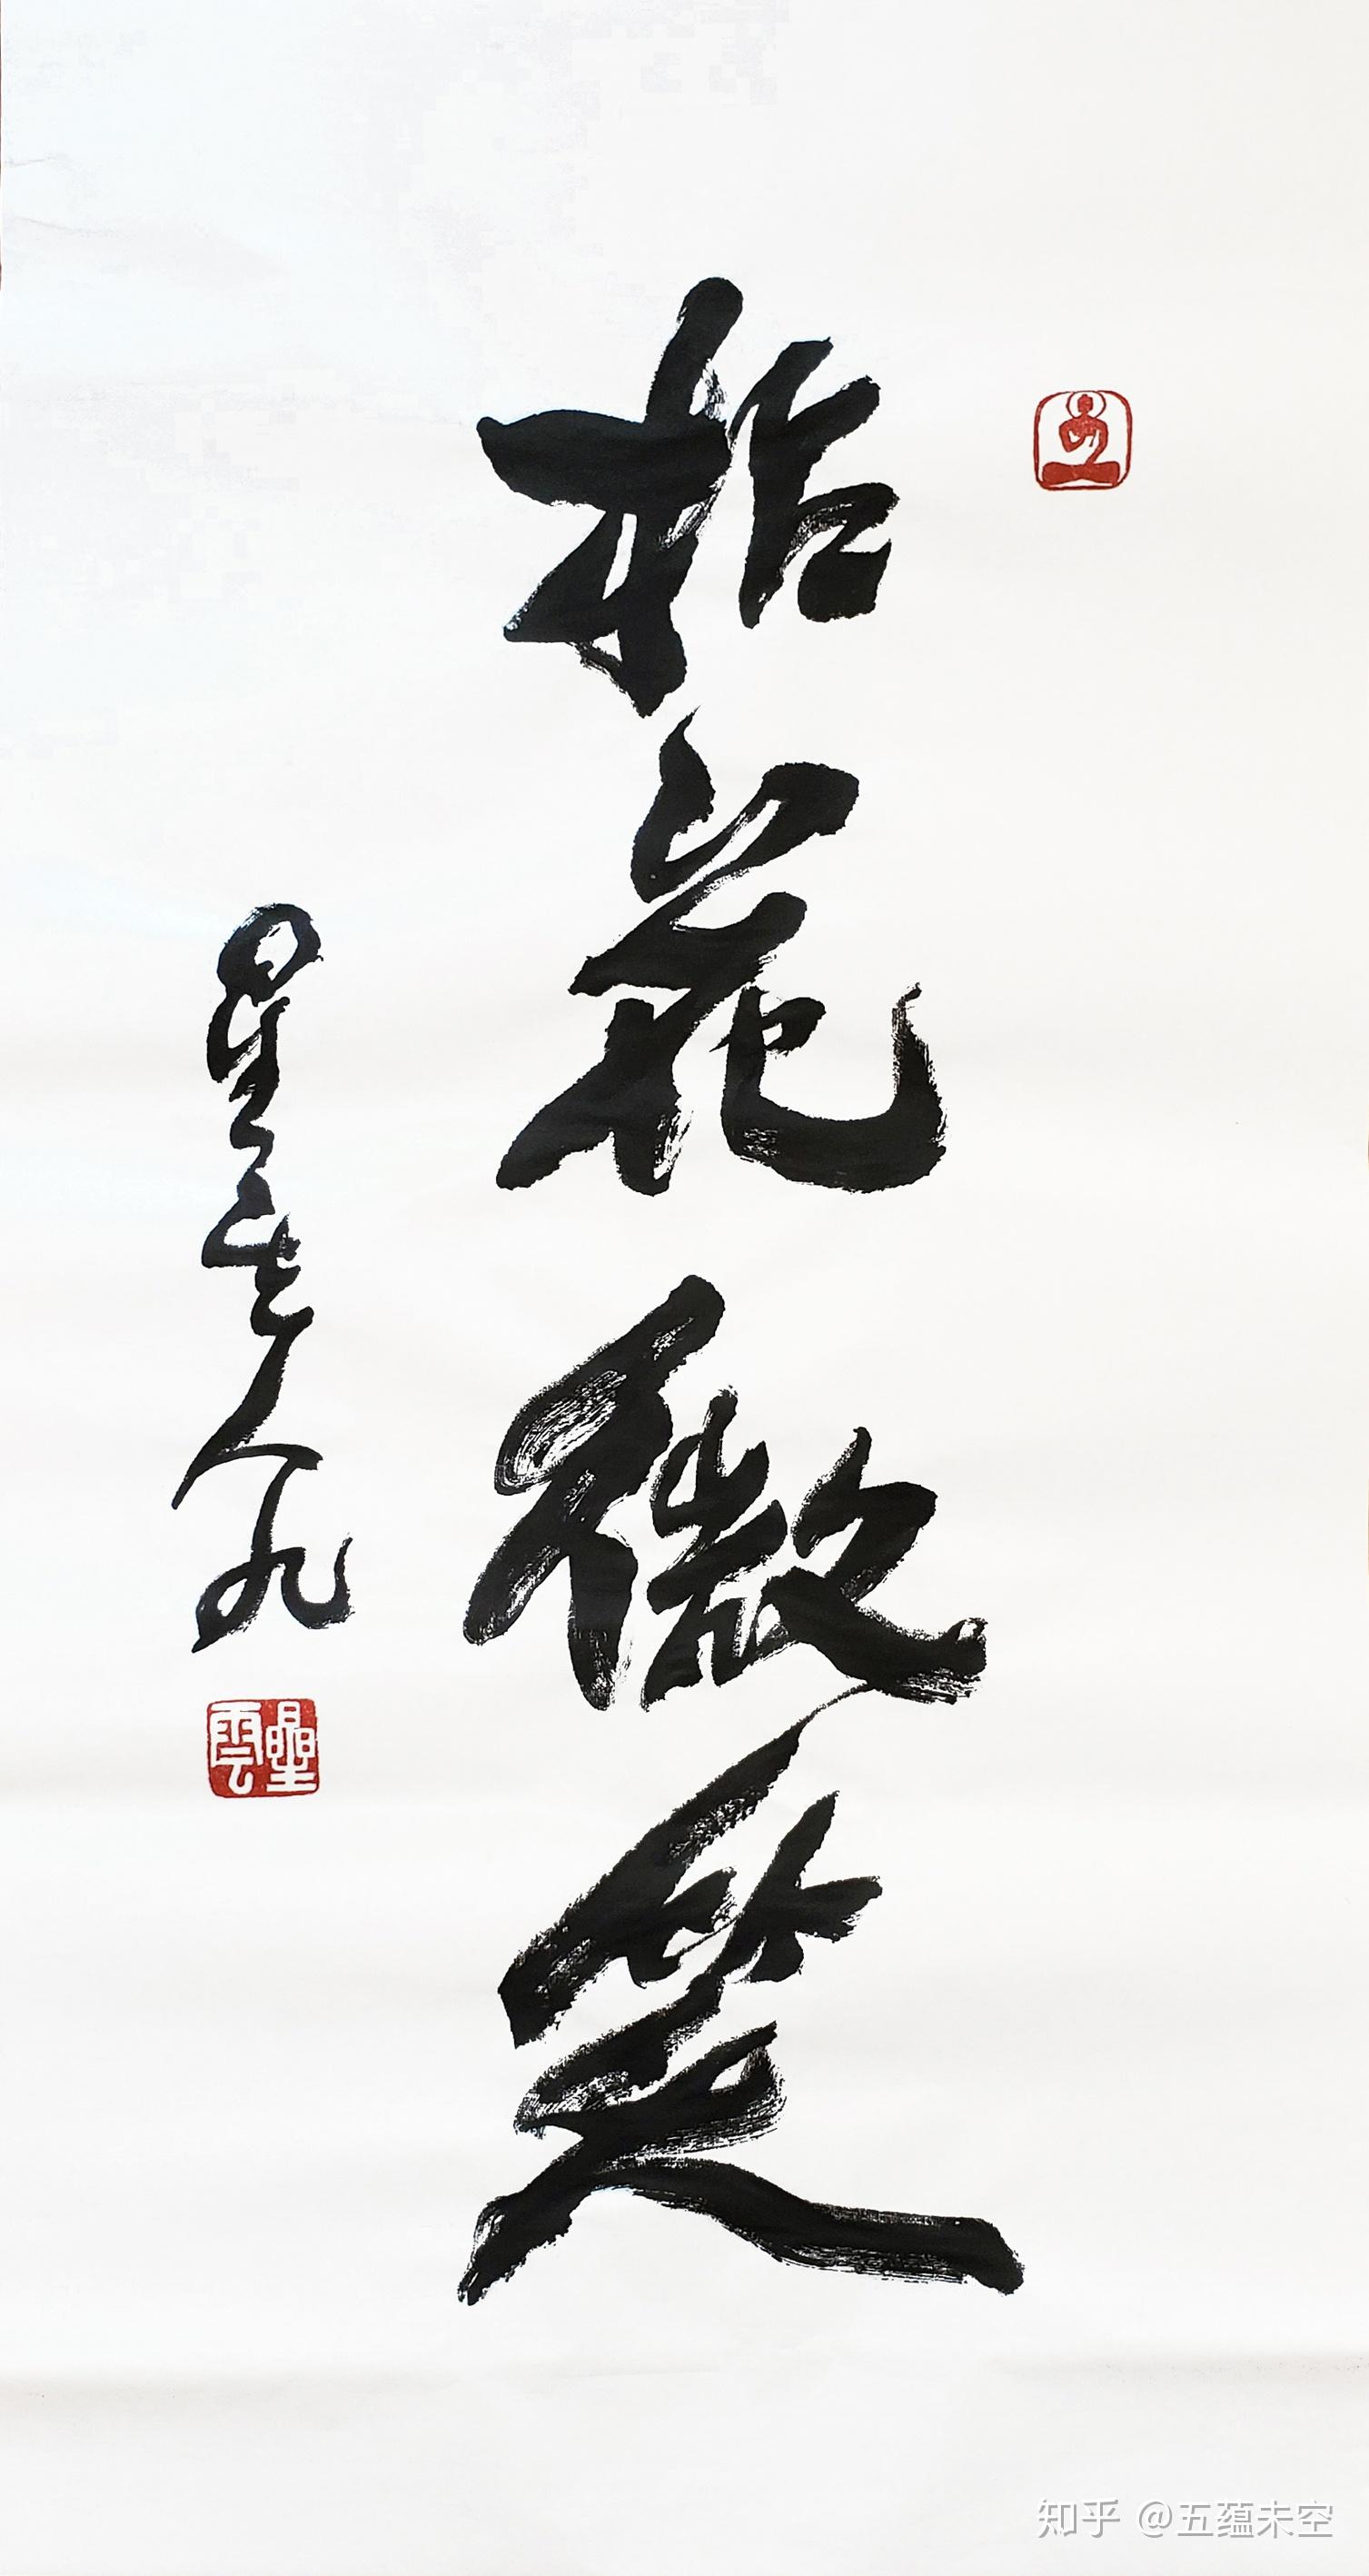 拈花微笑
星雲八九
星雲
知乎 @五蕴未空